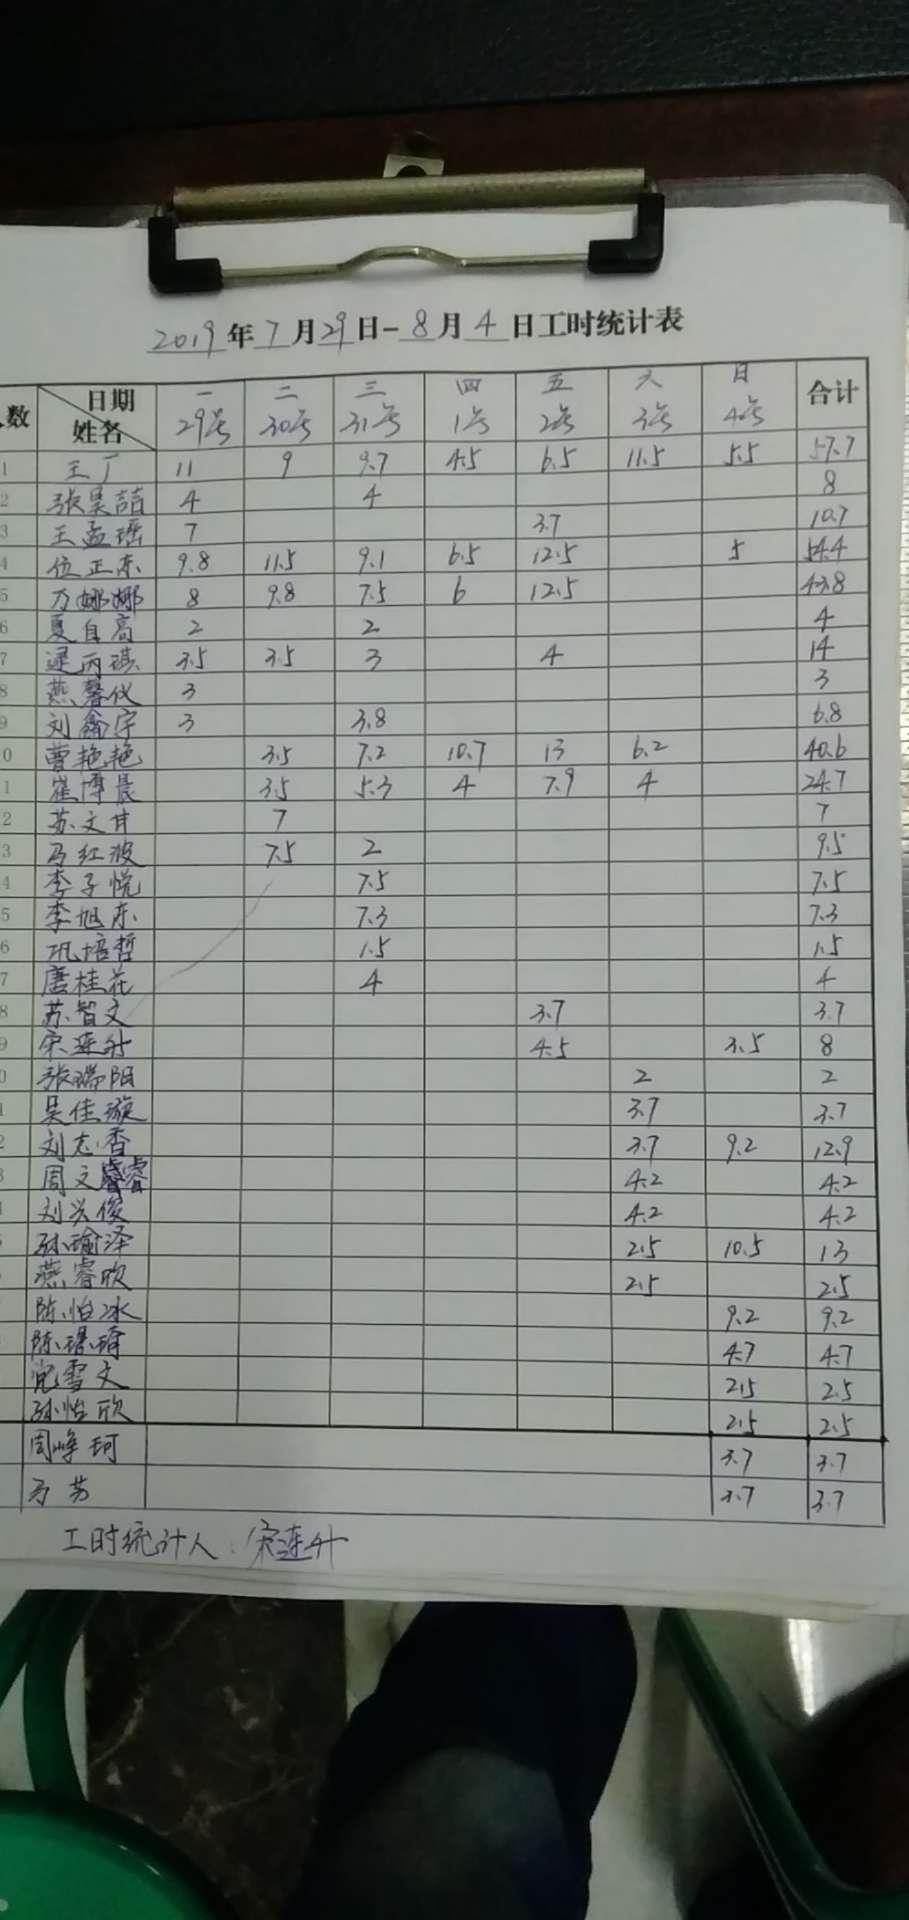 2019年7月29日-8月4日工时统计表
数 日期 姓名 一 29号 二 30号 三 31号 四 1号 五 2号 六 3号 日 4号 合计
1 王丁 11 9 9.7 4.5 6.5 11.5 5.5 57.7
2 张昊喆 4 4 8
3 王孟瑶 7 3.7 10.7
4 位正东 9.8 11.5 9.1 6.5 12.5 5 54.4
5 万娜娜 8 9.8 7.5 6 12.5 43.8
6 夏自高 2 2 4
7 逯丙琪 3.5 3.5 3 4 14
8 燕馨仪 3 3
9 刘鑫宇 3 3.8 6.8
0 曹艳艳 3.5 7.2 10.7 13 6.2 40.6
1 崔博晨 3.5 5.3 4 7.9 4 24.7
2 苏文甘 7 7
3 马红波 7.5 2 9.5
4 李子悦 7.5 7.5
5 李旭东 7.3 7.3
6 巩培哲 1.5 1.5
7 唐桂花 4 4
8 苏智文 3.7 3.7
9 宋莲升 4.5 3.5 8
0 张瑞阳 2 2
1 吴佳璇 3.7 3.7
2 刘志香 3.7 9.2 12.9
3 周文睿 4.2 4.2
刘兴俊 4.2 4.2
孙瑜泽 2.5 10.5 13
燕睿欣 2.5 2.5
陈怡冰 9.2 9.2
陈璟琦 4.7 4.7
倪雪文 2.5 2.5
孙怡欣 2.5 2.5
周峥珂 3.7 3.7
马芳 3.7 3.7
工时统计人:宋莲升